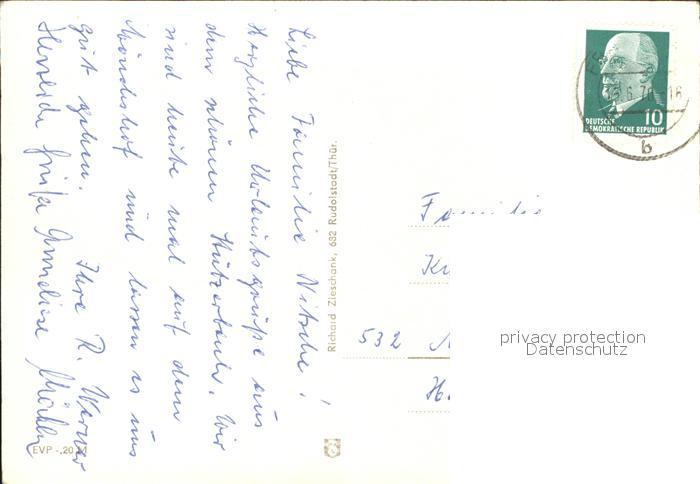 Liebe Familie Nitsche!
Herzliche Urlaubsgrüße aus
dem schönen Stützerbach. Wir
sind heute mal auf dem
Mönchshof und lassen es uns
gut gehen.
Ihre R. Werner
Herzliche Grüße Anneliese
Richard Zieschank, 682 Rudolstadt/Thür.
EVP -,20 M
DEUTSCHE
DEMOKRATISCHE REPUBLIK
10
b
Familie
532
privacy protection
Datenschutz